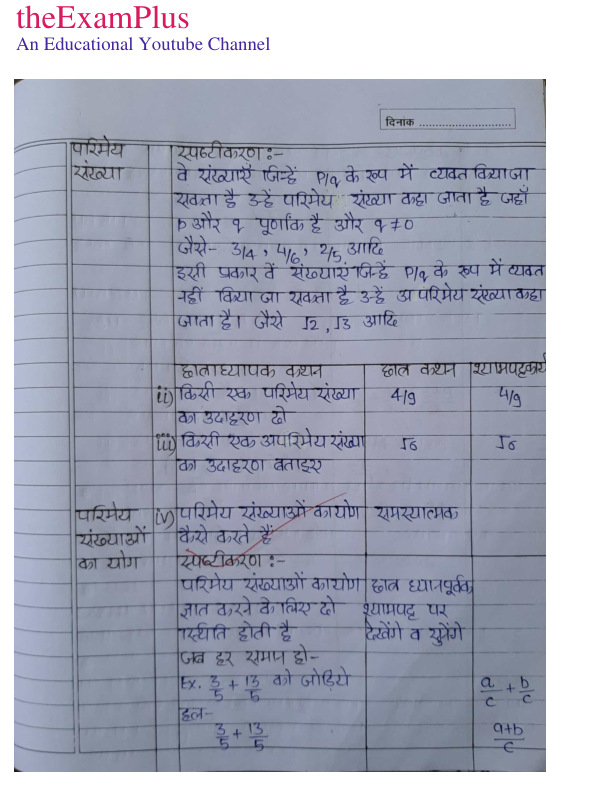 theExamPlus
An Educational Youtube Channel
दिनांक ..............................
परिमेय
संख्या
स्पष्टीकरण :-
वे संख्याएँ जिन्हें P/q के रूप में व्यक्त किया जा
सकता है उन्हें परिमेय संख्या कहा जाता है जहाँ
p और q पूर्णांक है और q≠0
जैसे- 3/4, 4/6, 2/5 आदि
इसी प्रकार वे संख्याएं जिन्हें P/q के रूप में व्यक्त
नहीं किया जा सकता है उन्हें अपरिमेय संख्या कहा
जाता है। जैसे √2, √3 आदि
छात्राध्यापक कथन छात्र कथन श्यामपट्टकार्य
ii) किसी एक परिमेय संख्या 4/9 4/9
का उदाहरण दो
iii) किसी एक अपरिमेय संख्या √6 √6
का उदाहरण बताइए
परिमेय iv) परिमेय संख्याओं का योग समस्यात्मक
संख्याओं कैसे करते हैं
का योग स्पष्टीकरण :-
परिमेय संख्याओं का योग छात्र ध्यानपूर्वक
ज्ञात करने के लिए दो श्यामपट्ट पर
स्थिति होती है देखेंगे व सुनेंगे
जब हर समान हो-
Ex. 3/5 + 13/5 को जोड़िये a/c + b/c
हल-
3/5 + 13/5 a+b/c